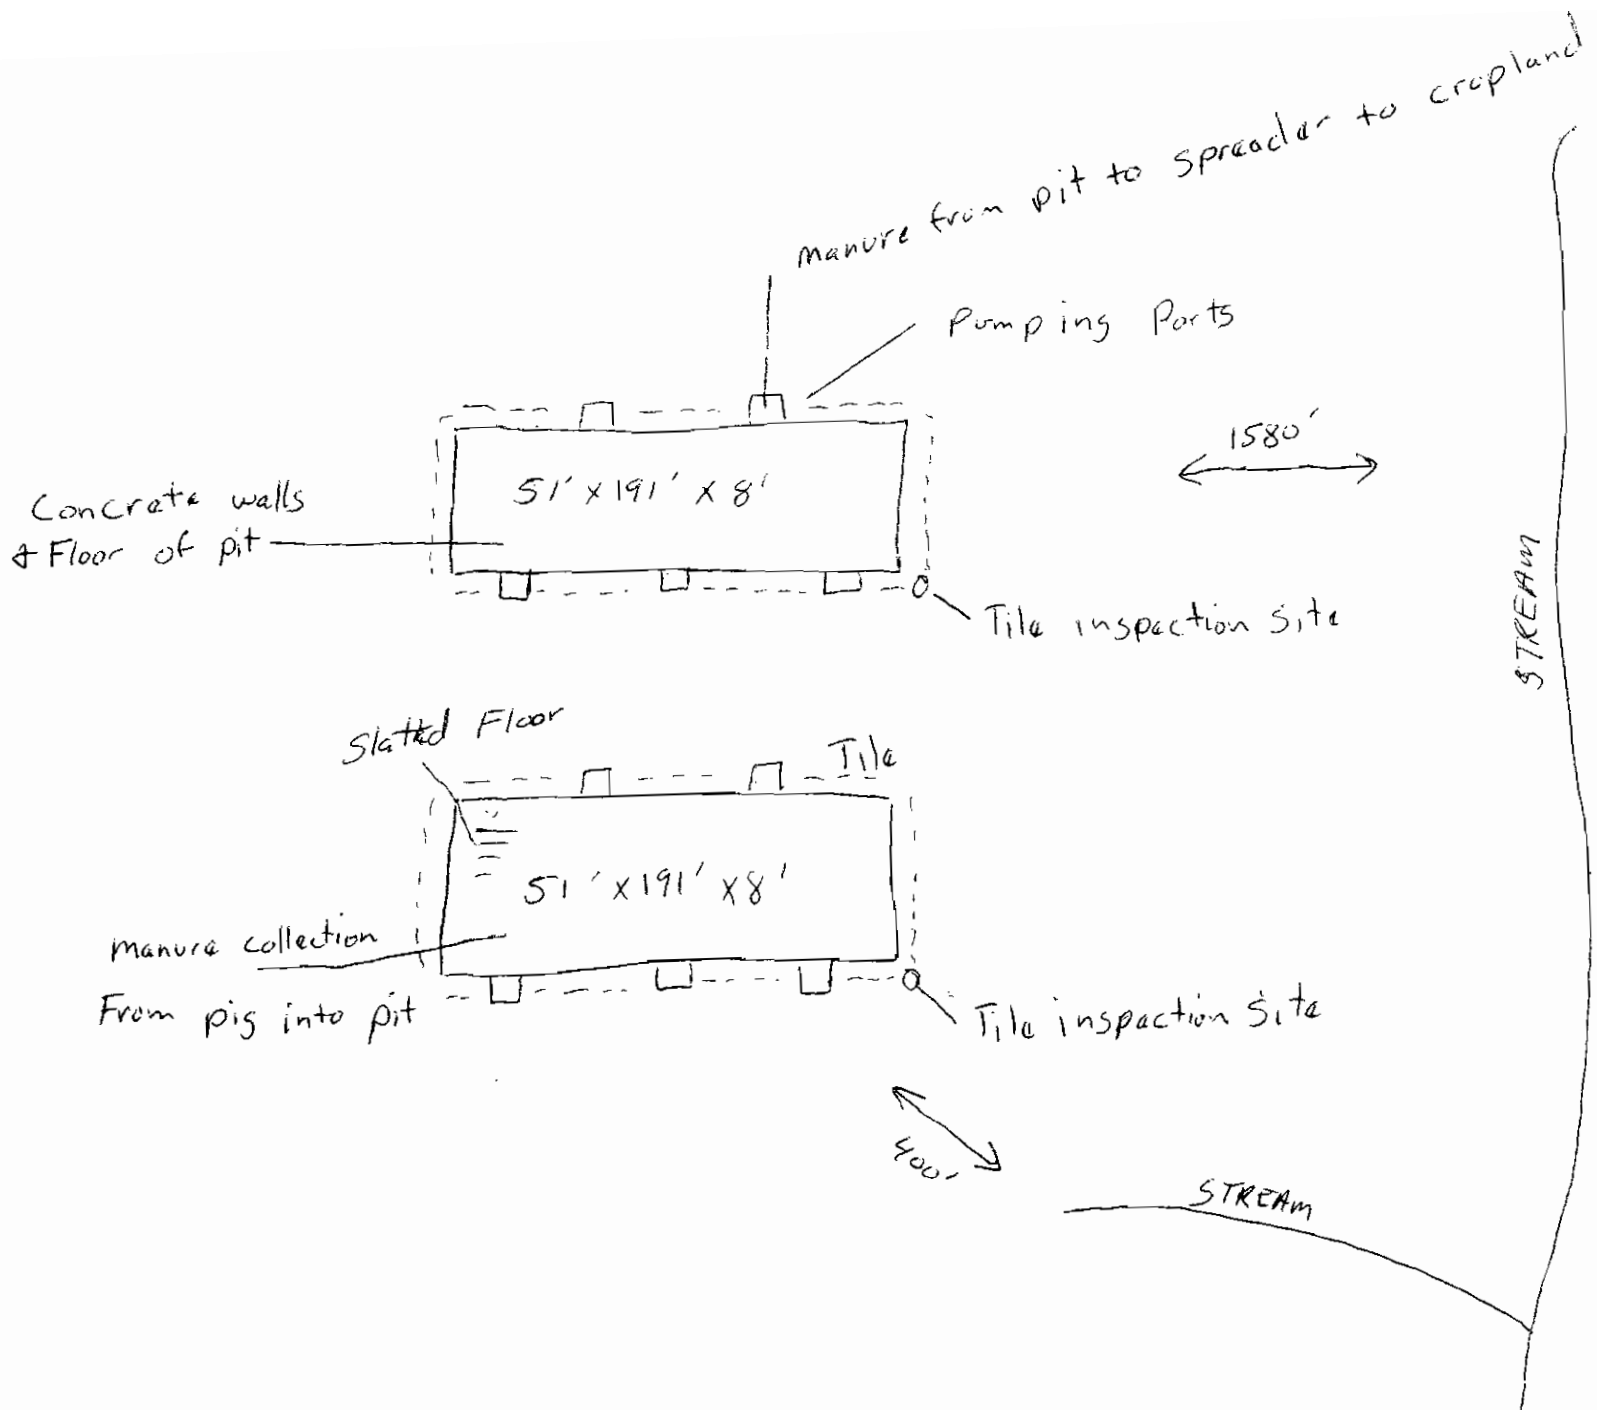 manure from pit to spreader to cropland
Pumping Ports
51' x 191' x 8'
1580'
Concrete walls
& Floor of pit
Tile inspection site
STREAM
Slatted Floor
Tile
51' x 191' x 8'
manure collection
From pig into pit
Tile inspection site
400'
STREAM